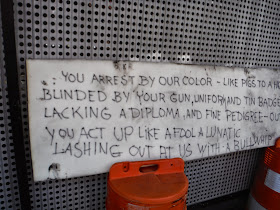 .: YOU ARREST BY OUR COLOR - LIKE PIGS TO A
BLINDED BY YOUR GUN, UNIFORM AND TIN BADGE
LACKING A DIPLOMA, AND FINE PEDIGREE - OUT
YOU ACT UP LIKE A FOOL A LUNATIC
LASHING OUT AT US WITH A BULLWHIP